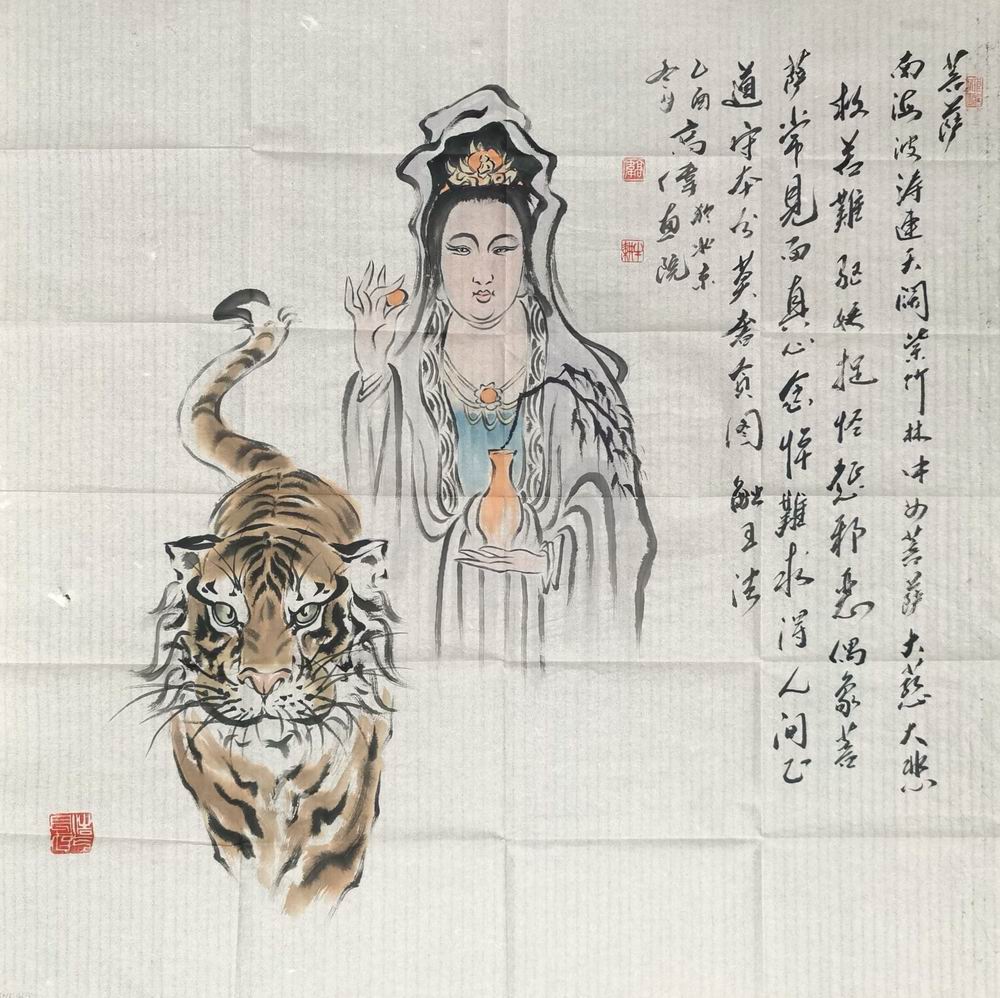 菩萨
南海波涛连天阔紫竹林中女菩萨大慈大悲
救苦難驱妖捉怪惩邪恶偶象菩
萨常見面真心難求得人间正
道守本分莫奢贪图触王法
乙酉
冬月
高偉於北京
画院